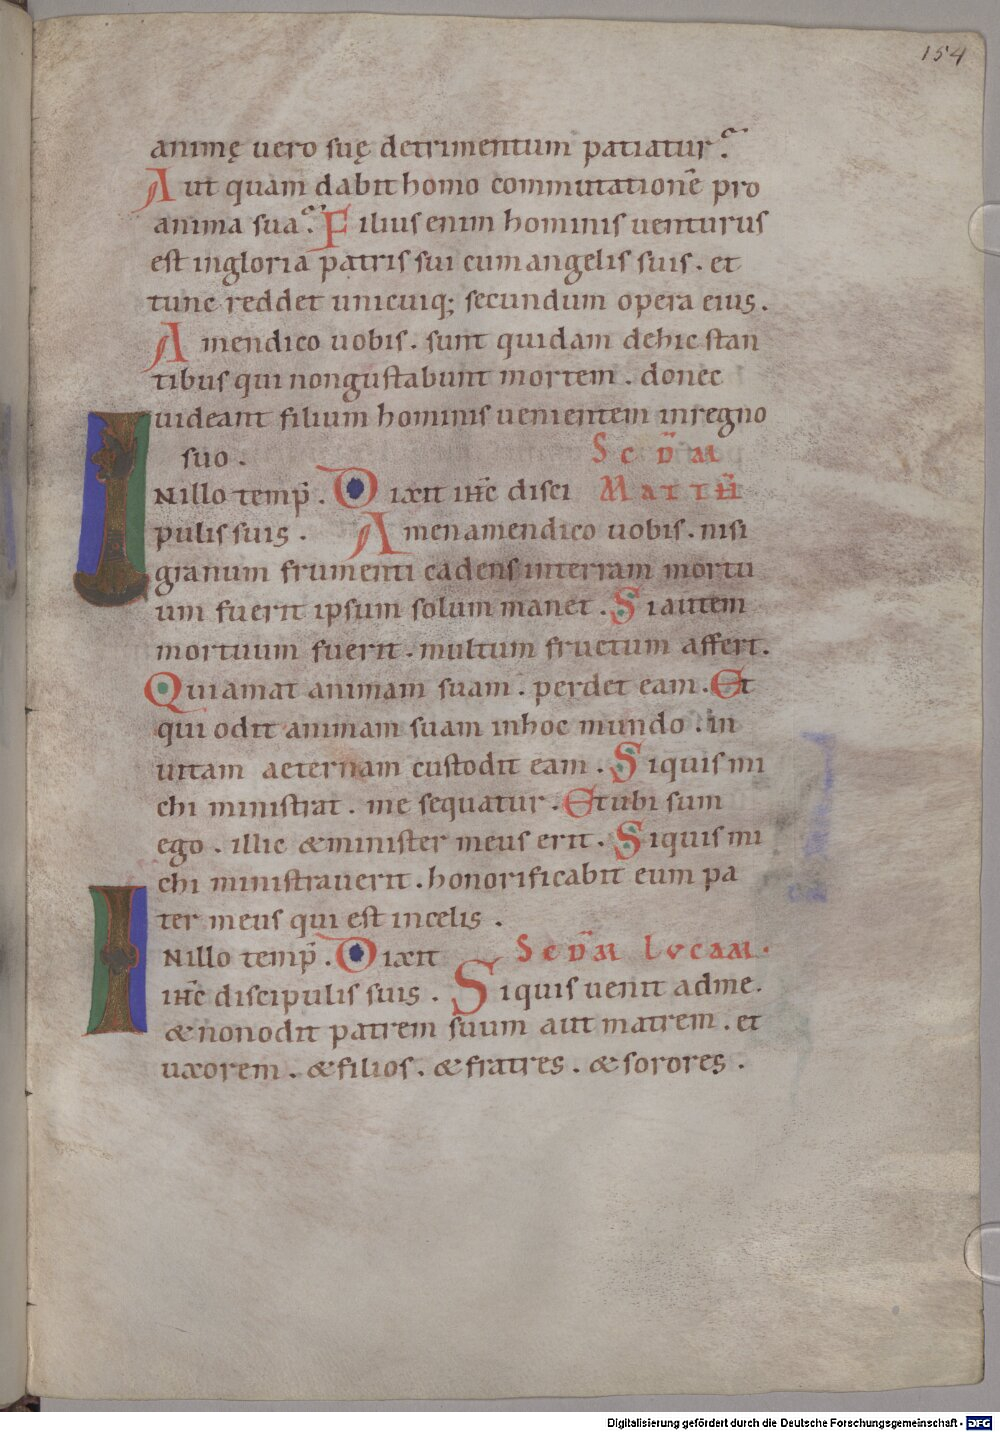 154
animę uero suę detrimentum patiatur?
Aut quam dabit homo commutationē pro
anima sua? Filius enim hominis uenturus
est ingloria patris sui cum angelis suis. et
tunc reddet unicuiq; secundum opera eius.
Amendico uobis. sunt quidam dehic stan
tibus qui nongustabunt mortem. donec
uideant filium hominis uenientem inregno
suo. Scdm
Nillo temp̄. Dixit ihc̄ disci Matth̄
pulis suis. Amenamendico uobis. nisi
granum frumenti cadens interram mortu
um fuerit ipsum solum manet. Siautem
mortuum fuerit. multum fructum affert.
Quiamat animam suam. perdet eam. Et
qui odit animam suam inhoc mundo. in
uitam aeternam custodit eam. Siquis mi
chi ministrat. me sequatur. Etubi sum
ego. illic &minister meus erit. Siquis mi
chi ministrauerit. honorificabit eum pa
ter meus qui est incelis.
INillo temp̄. Dixit Scdm Lucam.
ihc̄ discipulis suis. Siquis uenit adme.
&nonodit patrem suum aut matrem. et
uxorem. &filios. &fratres. &sorores.
Digitalisierung gefördert durch die Deutsche Forschungsgemeinschaft - DFG